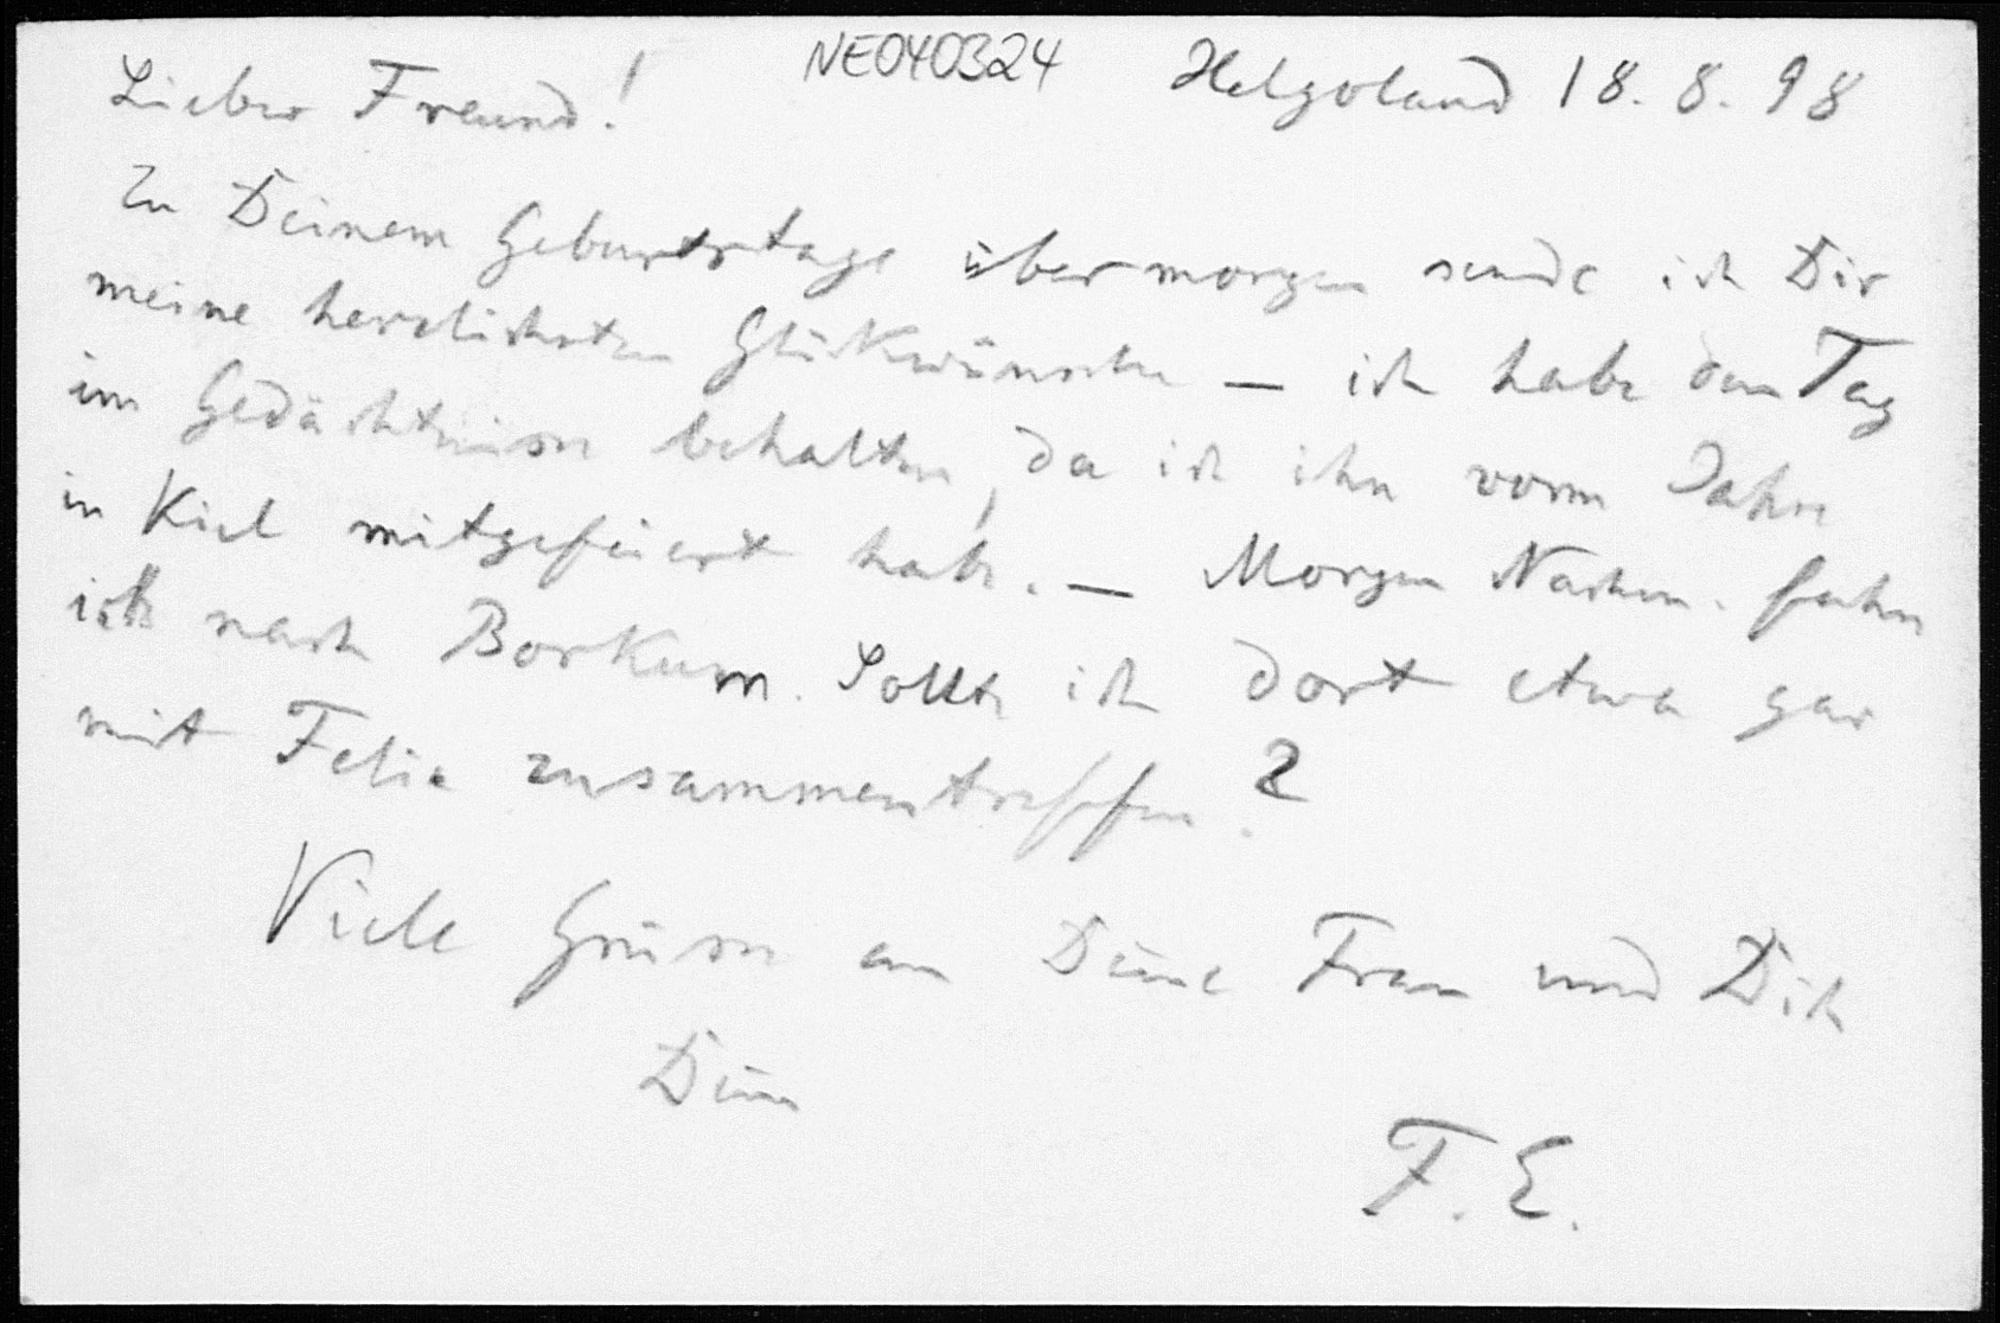 NE040324
Helgoland 18. 8. 98
Lieber Freund!
Zu Deinem Geburtstage übermorgen sende ich Dir
meine herzlichsten Glückwünsche — ich habe den Tag
im Gedächtnisse behalten, da ich ihn vorm Jahre
in Kiel mitgefeiert habe. — Morgen Nachm. fahre
ich nach Borkum. Sollte ich dort etwa gar
mit Felix zusammentreffen?
Viele Grüsse an Deine Frau und Dich
Dein
F. E.